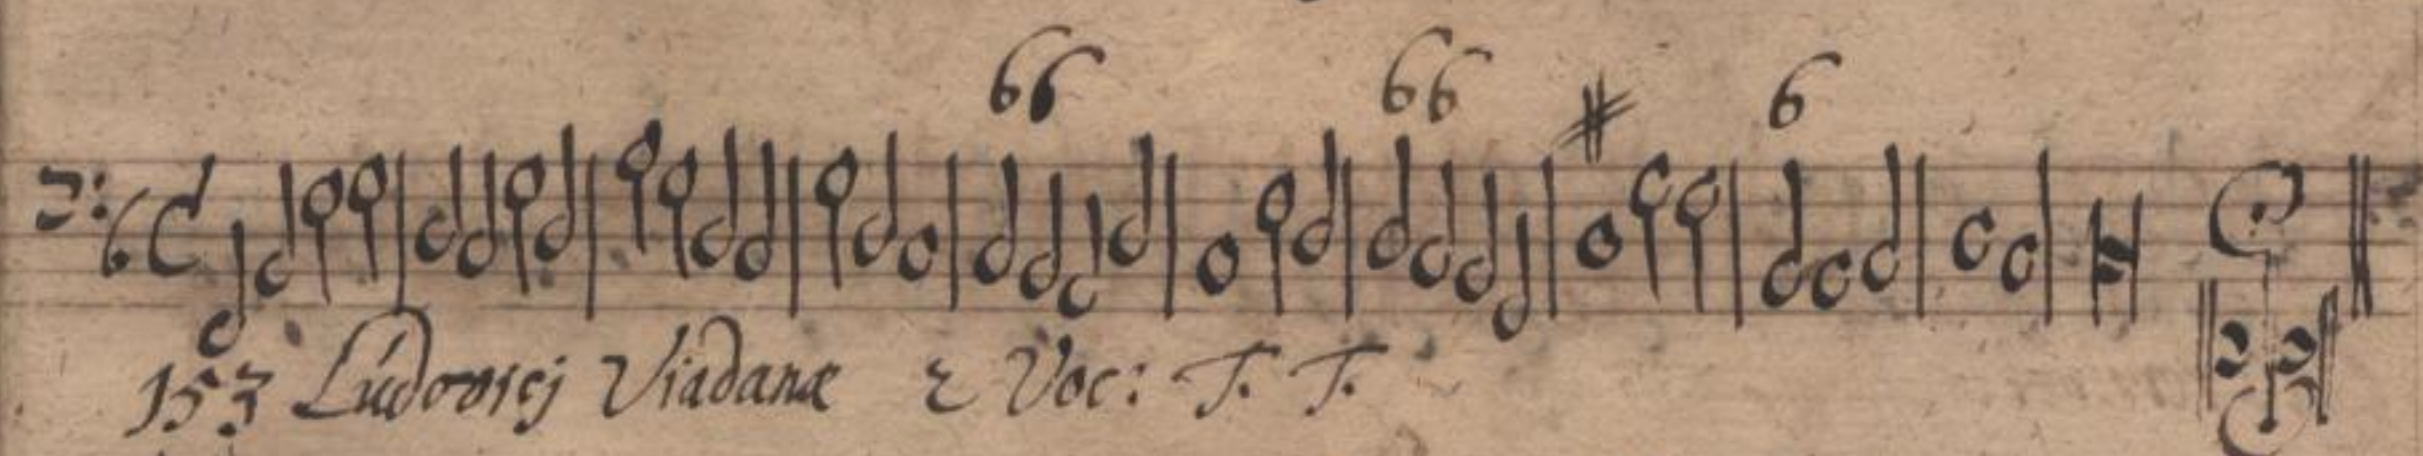 66 66 # 6
153 Ludovici Viadanæ 2 Voc: T. T.